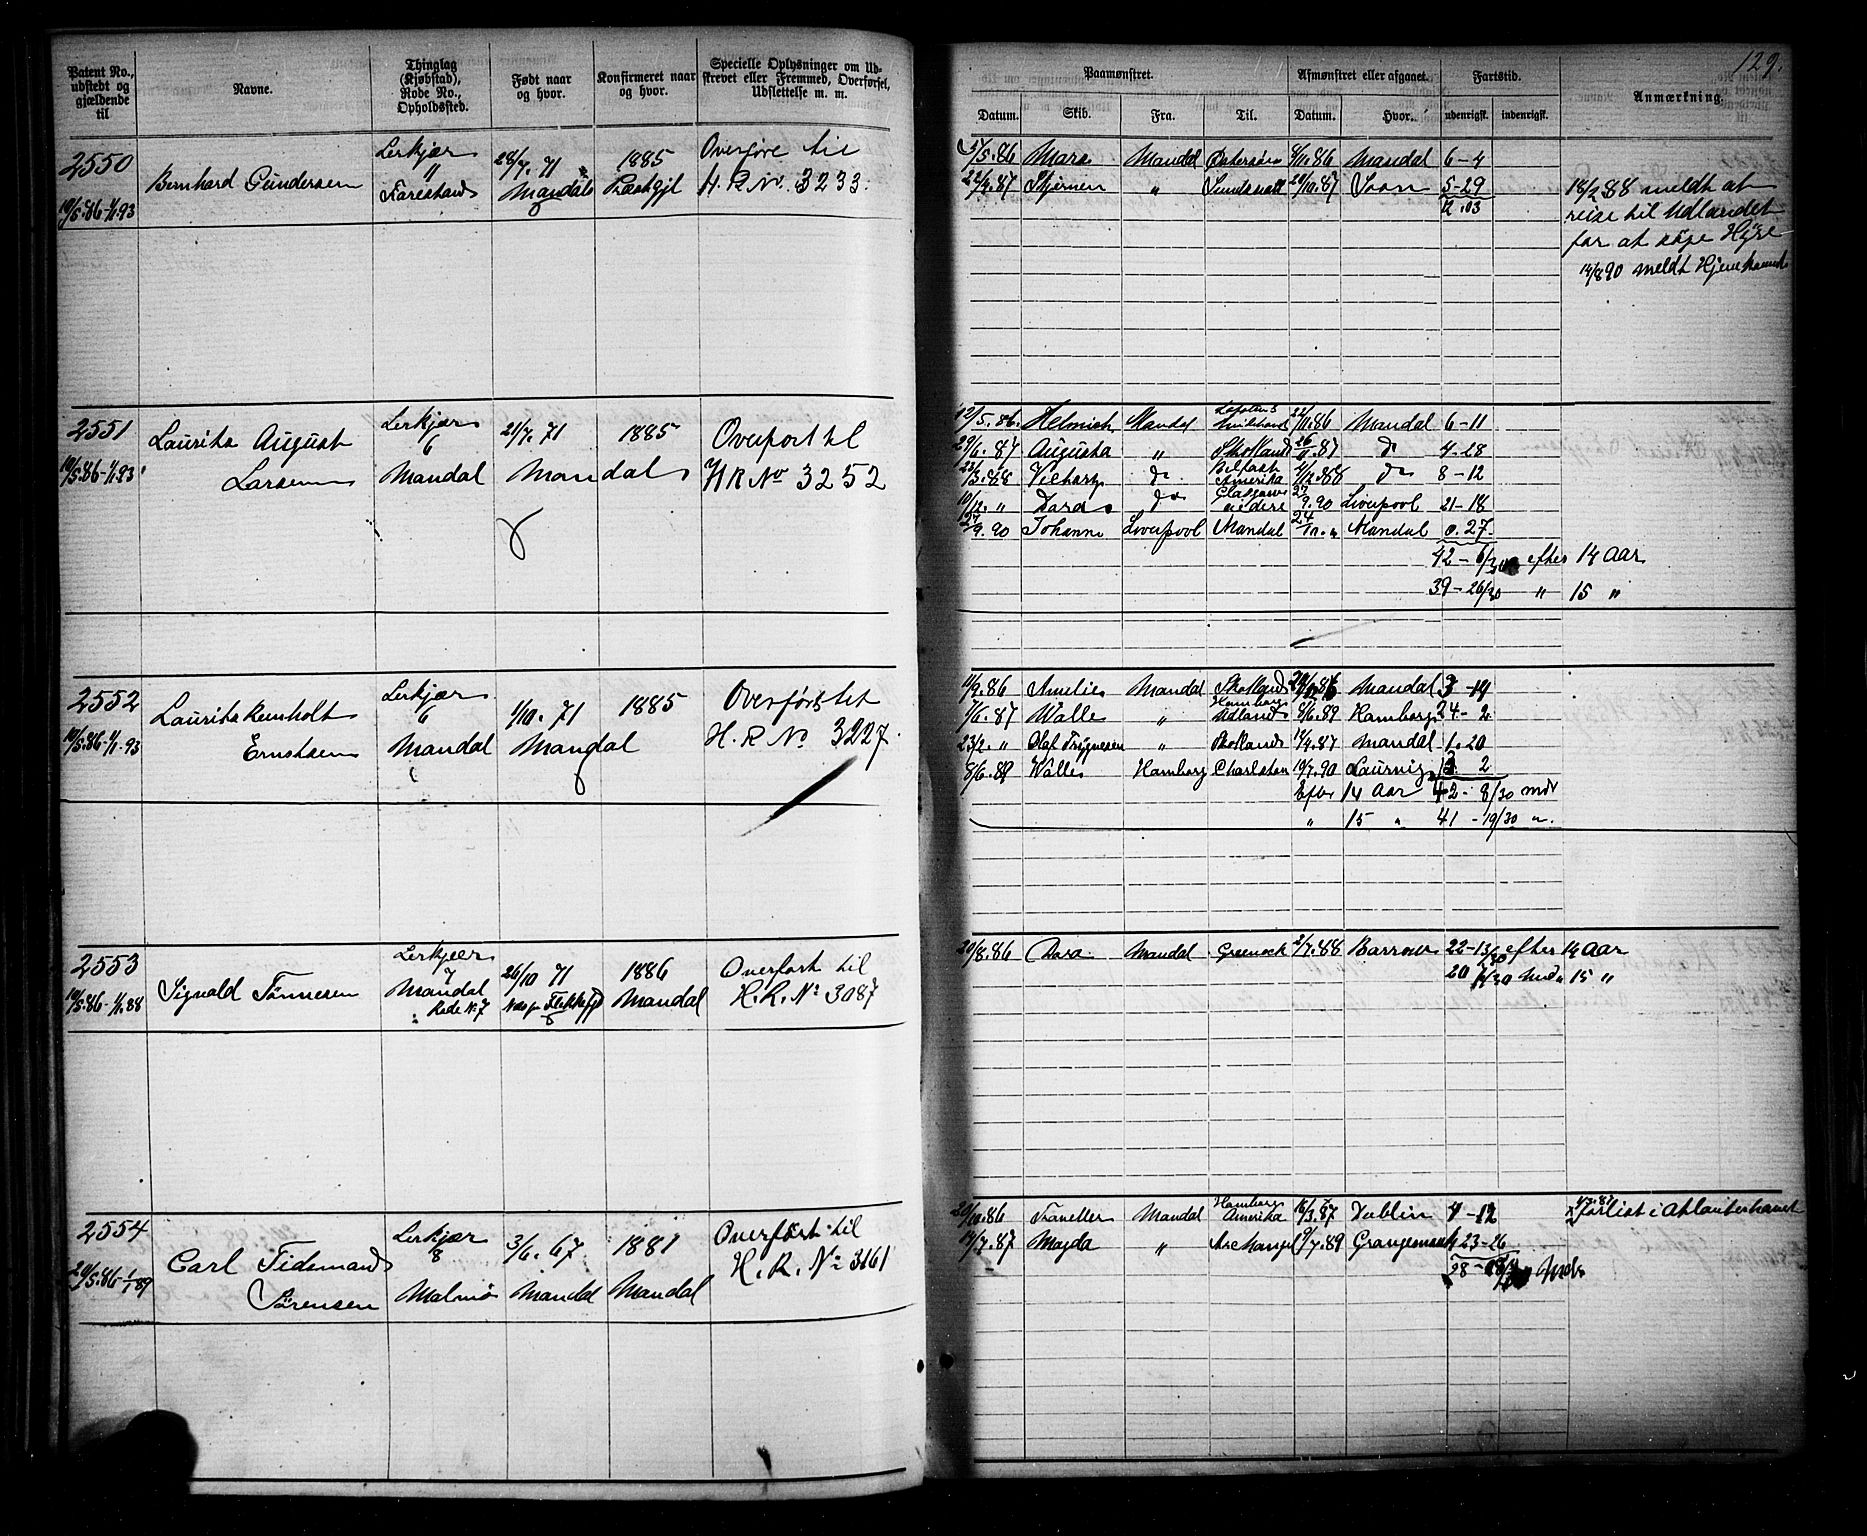 129.
Patent No., udstedt og gjældende til
Navne.
Thinglag (Kjøbstad), Rode No., Opholdssted.
Født naar og hvor.
Konfirmeret naar og hvor.
Specielle Oplysninger om Udskrevet eller Fremmed, Overførsel, Udslettelse m. m.
Paamønstret.
Afmønstret eller afgaaet.
Fartstid.
Anmærkning.
Datum. Skib. Fra. Til. Datum. Hvor. udenrigsk. indenrigsk.
2550
10/5.86-1/1.93
Bernhard Gundersen
Lerkjær
"
Farestad
28/7. 71
Mandals
1885
Præstgjl
Overføre til
H. R. No. 3233.
Mars Mandal 4/11.86 Mandal 6-4
22/4.87 Stjernen " Sundsvall 20/10.87 5-29
12.03
18/2 88 meldt at
reise til Udlandet
for at søge Hyre
14/8 90 meldt Hjemkomst
2551
10/5.86-1/1.93
Laurits August
Larsen
Lerkjær
6
Mandal
21/7. 71
Mandal
1885
Overført til
H R No 3252
12/5.86. Helmich Mandal 22/11.86 Mandal 6-11
29/6.87 Augusta " Skotland 26/11.87 do 4-28
23/3.88 do Belfast Amerika 4/12.88 do 8-12
10/12. " Dora do Glasgow 27/9.90 Liverpool 21-18
27/9.90 Johanne Liverpool Mandal 24/10. " Mandal 0.27
42-6/30 efter 14 Aar
39-26/30 " 15 "
2552
10/5.86-1/1.93
Laurits Reinholt
Ernstsen
Lerkjær
6
Mandal
1/10. 71
Mandal
1885
Overført til
H. R No 3227.
11/9.86 Amelie Mandal Skotland Mandal 3-14
7/6.87 Walle " Hamborg Udland 8/6.89 Hamborg 24-2
23/2. " Olaf Trygvesen " Skotland 14/4.87 Mandal 1.20
8/6.89 Walle Hamborg Charlston 10/7.90 Laurvig 13 2
Efter 14 Aar 42-8/30 mdr
" 15 " 41-19/30 "
2553
10/5.86-1/1.88
Sigvald Tønnesen
Lerkjær
7
Mandal
Rode No 7
26/10 71
Næs pr Flekkefjd
1886
Mandal
Overført til
H. R. No 3087
20/8.86 Dora Mandal Greenock 2/7.88 Barrow 22-13/30 efter 14 Aar
20 Md. 15 "
2554
20/5.86-1/1 89
Carl Tidemand
Sørensen
Lerkjær
8
Malmø
3/6. 67
Mandal
1881
Mandal
Overført til
H. R. No 3161
20/10.86 Mandal Hamborg Amerika 16/3.87 Dublin 4-12
forlist i Atlanterhavet
14/7.87 Magda " Archangel 9/7.89 Grangemouth 23-26
28- Mdr